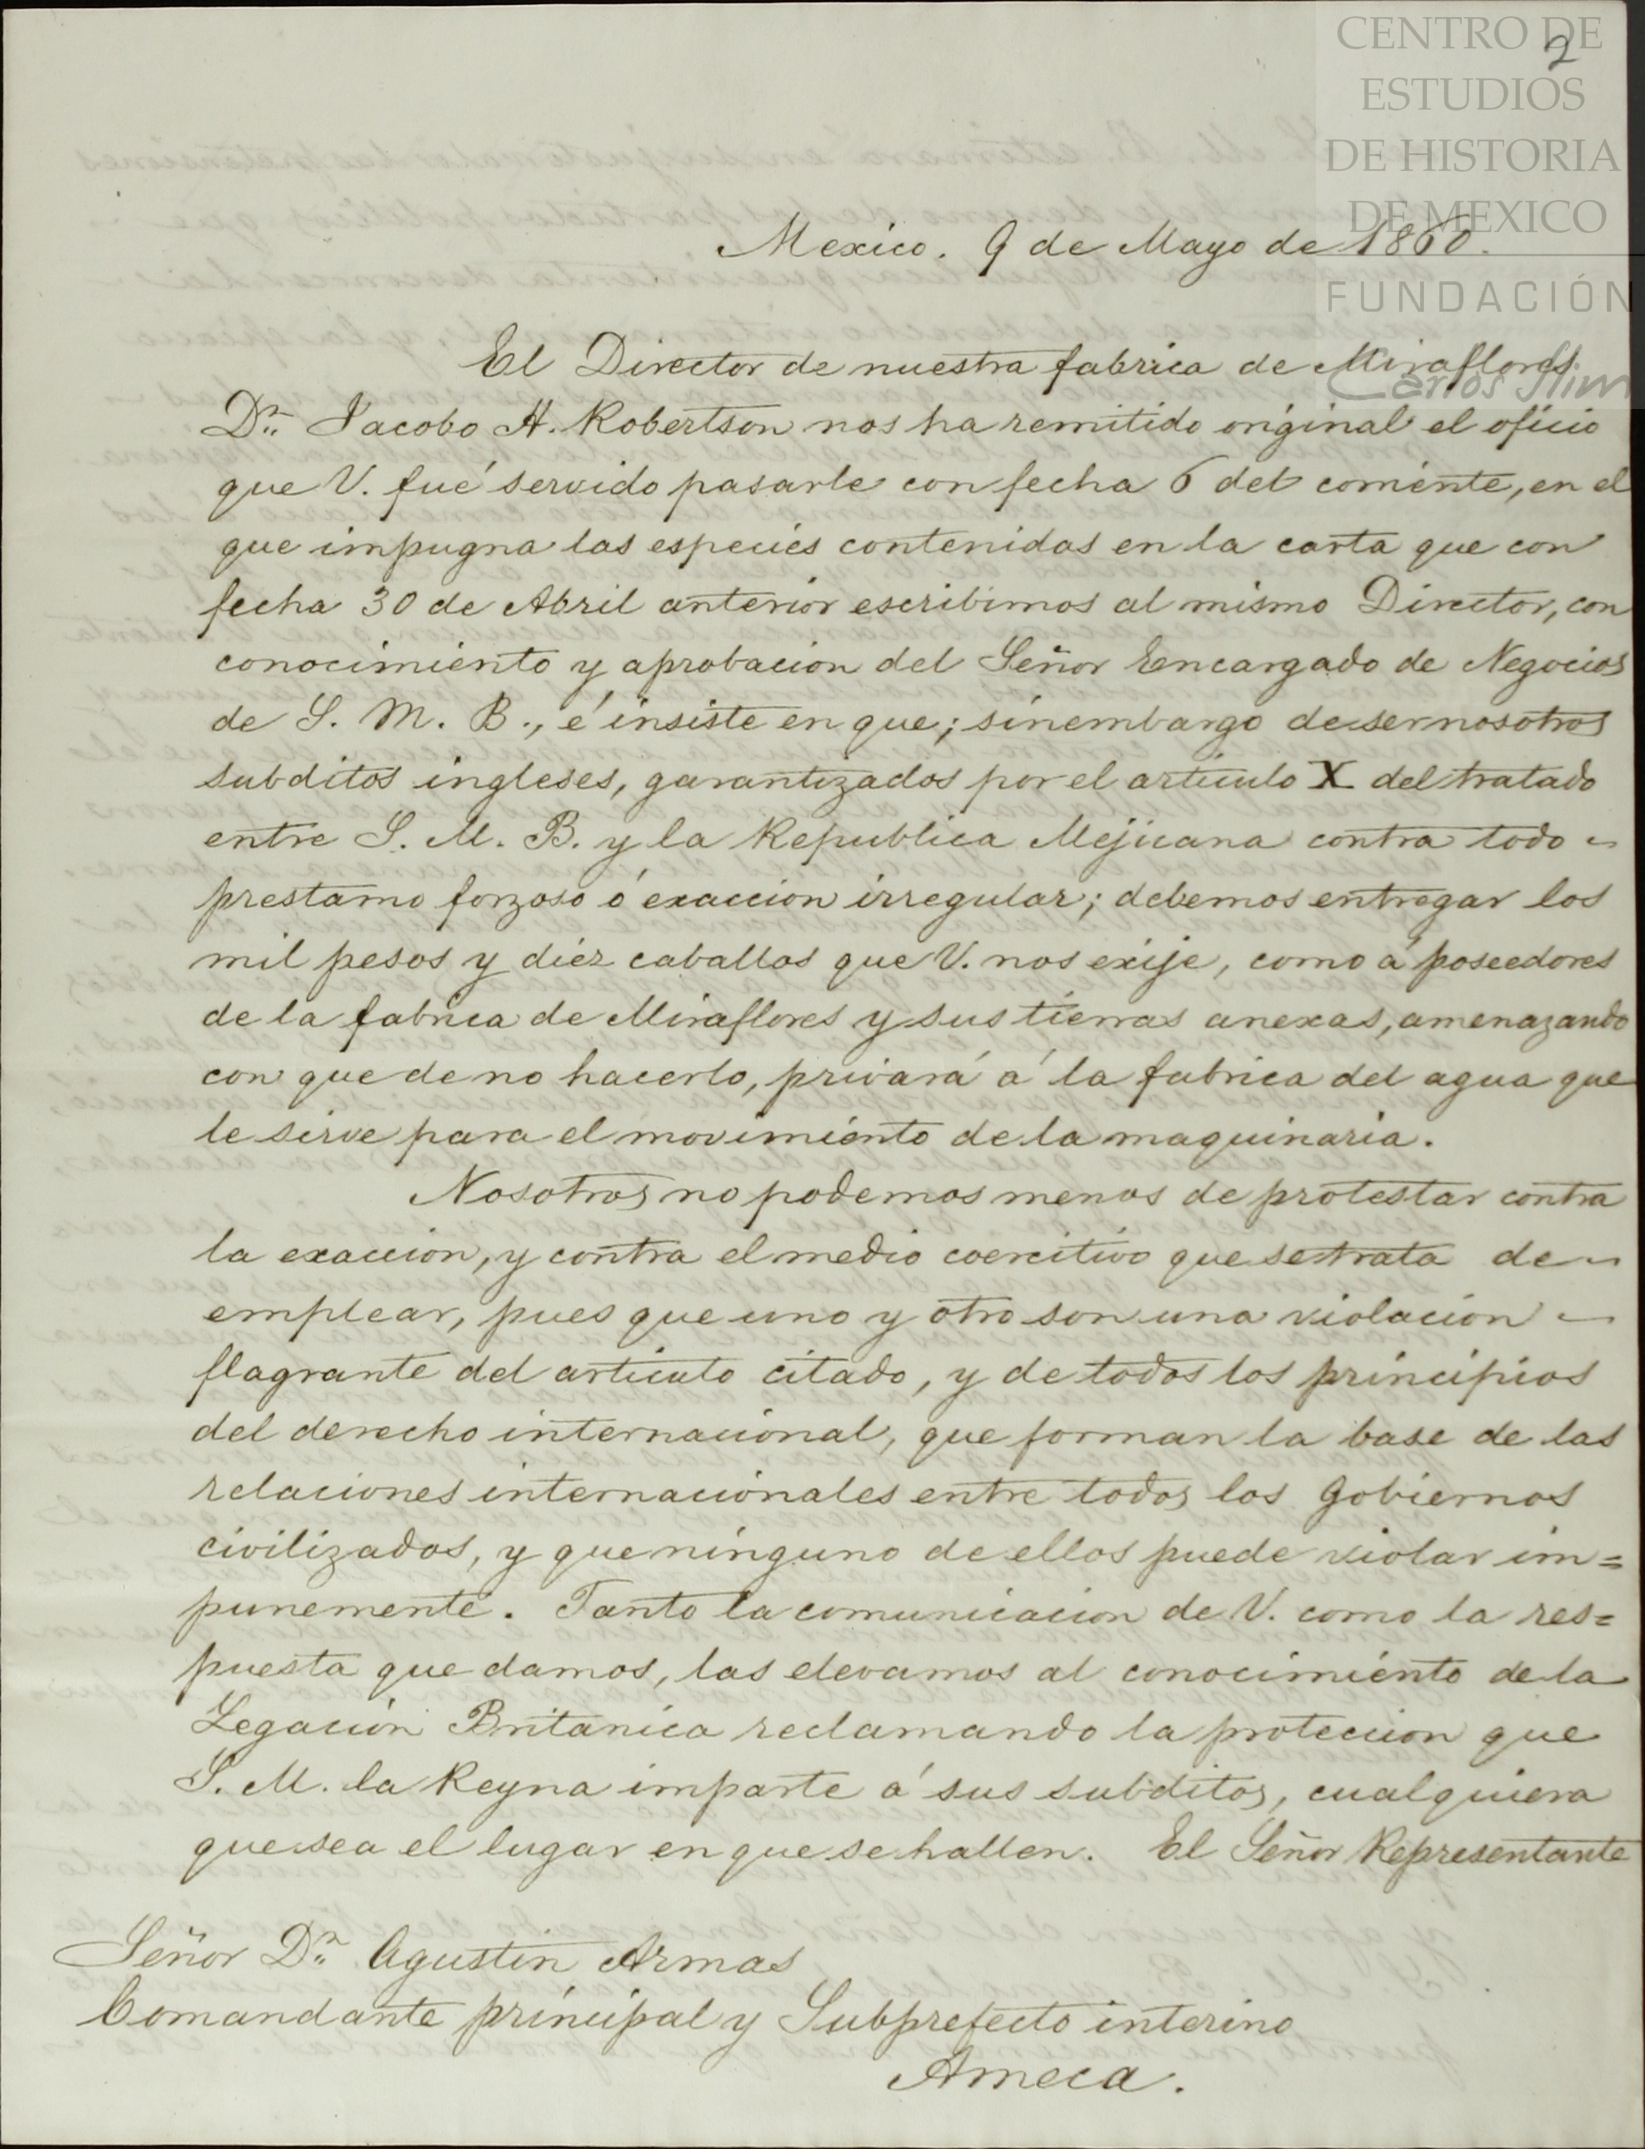 CENTRO DE
ESTUDIOS
DE HISTORIA
DE MEXICO
FUNDACIÓN
Carlos Slim
2
Mexico. 9 de Mayo de 1860.
El Director de nuestra fabrica de Miraflores.
Dn. Jacobo H. Robertson nos ha remitido original el oficio
que V. fué servido pasarle con fecha 6 del corriente, en el
que impugna las especies contenidas en la carta que con
fecha 30 de Abril anterior escribimos al mismo Director, con
conocimiento y aprobacion del Señor Encargado de Negocios
de S. M. B., é insiste en que; sinembargo de ser nosotros
subditos ingleses, garantizados por el articulo X del tratado
entre S. M. B. y la Republica Mejicana contra todo
prestamo forzoso ó exaccion irregular; debemos entregar los
mil pesos y diez caballos que V. nos exije, como á poseedores
de la fabrica de Miraflores y sus tierras anexas, amenazando
con que de no hacerlo, privará á la fabrica del agua que
le sirve para el movimiento de la maquinaria.
Nosotros no podemos menos de protestar contra
la exaccion, y contra el medio coercitivo que se trata de
emplear, pues que uno y otro son una violacion
flagrante del articulo citado, y de todos los principios
del derecho internacional, que forman la base de las
relaciones internacionales entre todos los Gobiernos
civilizados, y que ninguno de ellos puede violar im=
punemente. Tanto la comunicacion de V. como la res=
puesta que damos, las elevamos al conocimiento de la
Legacion Britanica reclamando la proteccion que
S. M. la Reyna imparte á sus subditos, cualquiera
que sea el lugar en que se hallen. El Señor Representante
Señor Dn. Agustin Armas
Comandante principal y Subprefecto interino
Ameca.